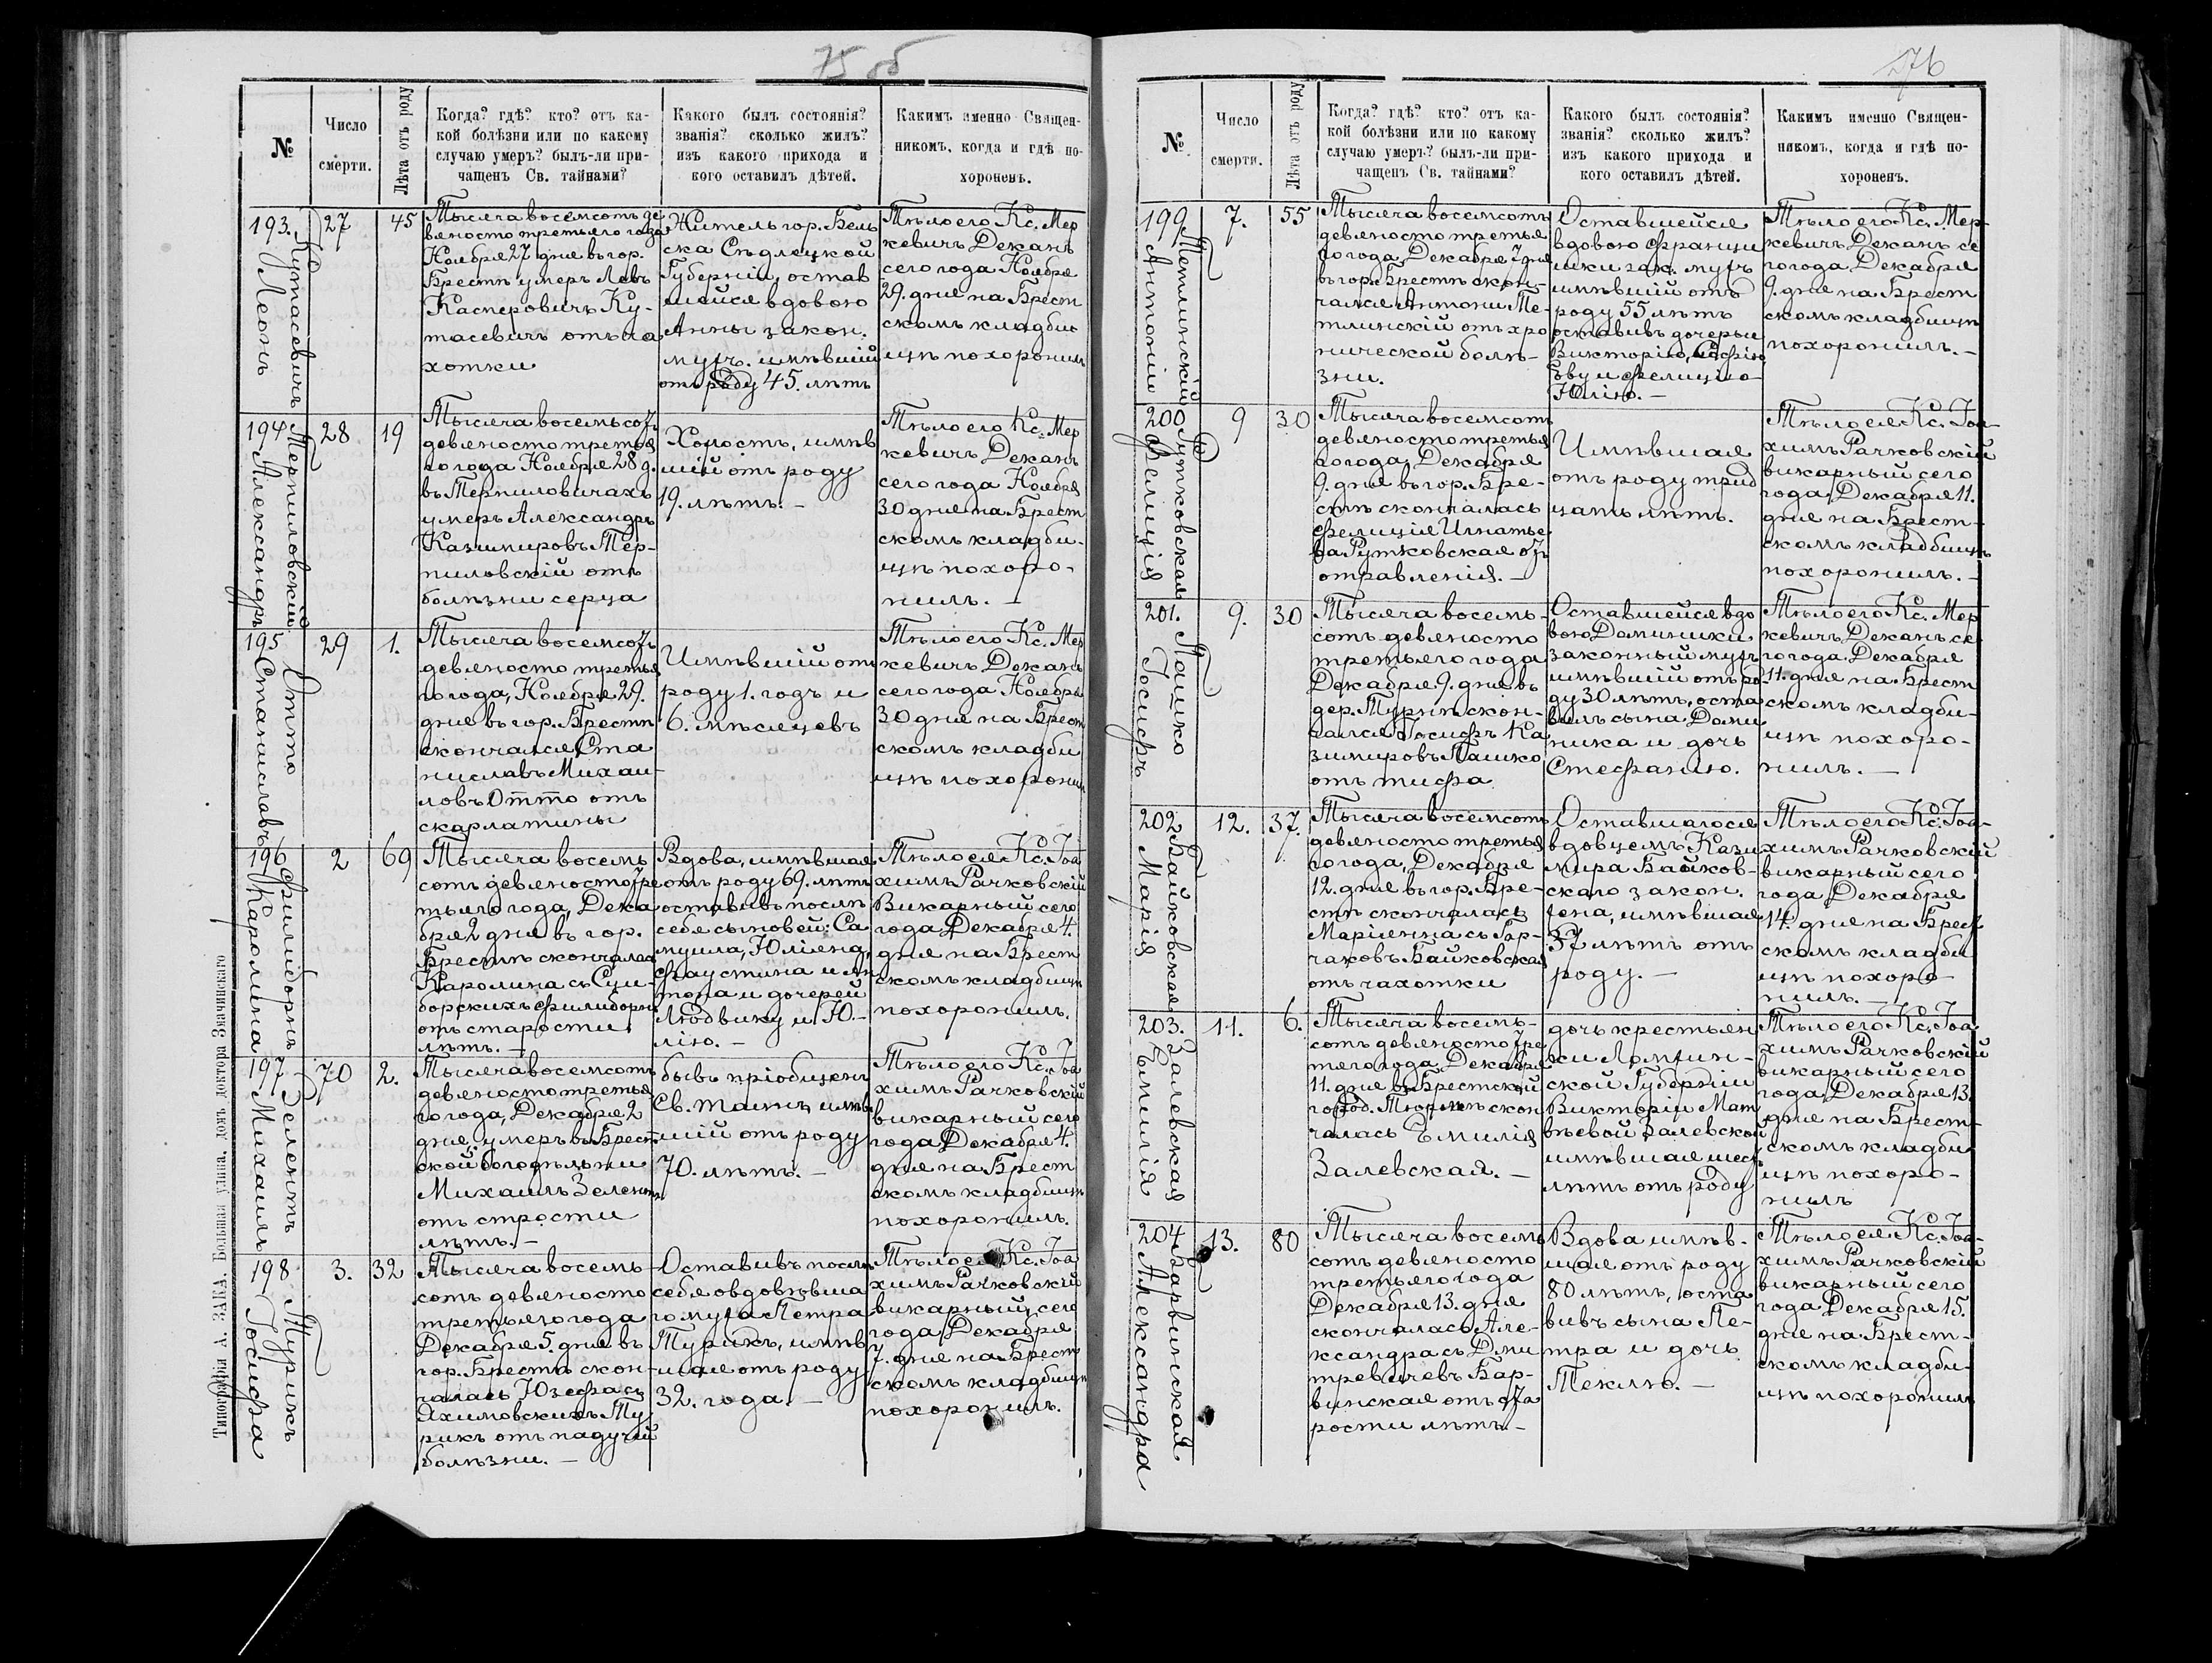 75 об
№
Число
смерти.
Лѣта отъ роду
Когда? гдѣ? кто? отъ ка-
кой болѣзни или по какому
случаю умеръ? былъ-ли при-
чащенъ Св. тайнами?
Какого былъ состоянія?
званія? сколько жилъ?
изъ какого прихода и
кого оставилъ дѣтей.
Какимъ именно Священ-
никомъ, когда и гдѣ по-
хороненъ.
193.
Кутасевичъ
Леонъ
27
45
Тысяча восемсотъ де
вяносто третьяго года
Ноября 27 дня въ гор.
Брестѣ умеръ Левъ
Касперовичъ Ку-
тасевичъ отъ ча
хотки
Житель гор. Бель
ска Сѣдлецкой
Губерніи, остав
шейся вдовою
Анны закон.
мужъ. имѣвшій
отъ роду 45. лѣтъ
Тѣло его Кс. Мер
кевичъ Деканъ
сего года Ноября
29. дня на Брест
скомъ кладби
щѣ похоронилъ
194
Терпиловскій
Александръ
28
19
Тысяча восемьсотъ
девяносто третья
го года Ноября 28 д.
въ Терпиловичахъ
умеръ Александръ
Казимировъ Тер-
пиловскій отъ
болѣзни серца
Холостъ, имѣв
шій отъ роду
19. лѣтъ. -
Тѣло его Кс. Мер
кевичъ Деканъ
сего года Ноября
30 дня на Брест
скомъ кладби-
щѣ похоро-
нилъ. -
195
Отто
Станиславъ
29
1.
Тысяча восемсотъ
девяносто третья
го года, Ноября 29.
дня въ гор. Брестѣ
скончался Ста
ниславъ Михаи-
ловъ Отто отъ
скарлатины
Имѣвшій отъ
роду 1. годъ и
6. мѣсяцевъ
Тѣло его Кс. Мер
кевичъ Деканъ
сего года Ноября
30 дня на Брест
скомъ кладби
щѣ похоронилъ
196
Филиборнъ
Каролина
2
69
Тысяча восемь
сотъ девяносто тре
тьяго года, Дека
бря 2 дня въ гор.
Брестѣ скончалас
Каролина съ Сум-
борскихъ Филиборнъ
отъ старости
лѣтъ. -
Вдова, имѣвшая
отъ роду 69. лѣтъ
оставивъ послѣ
себя сыновей: Са
муила, Юліяна,
Фаустина и Ан
тона и дочерей
Людвику и Ю-
лію. -
Тѣло ея Кс. Іоа
химъ Рачковскій
Викарный сего
года Декабря 4.
дня на Брест
скомъ кладбищѣ
похоронилъ.
197
Зелентъ
Михаилъ
70
2.
Тысяча восемсотъ
девяносто третья
го года, Декабря 2
дня, умеръ въ Брест-
ской богодѣльни
Михаилъ Зелентъ
отъ строcти
лѣтъ. -
бывъ пріобщенъ
Св. таинъ имѣв
шій отъ роду
70. лѣтъ. -
Тѣло его Кс. Іоа
химъ Рачковскій
викарный сего
года Декабря 4.
дня на Брест
скомъ кладбищѣ
похоронилъ.
198
Турикъ
Іосифа
3.
32
Тысяча восемь
сотъ девяносто
третьяго года
Декабря 5. дня въ
гор. Брестѣ скон-
чалась Юзефа съ
Яхимовскихъ Ту
рикъ отъ падучей
болѣзни. -
Оставивъ послѣ
себя овдовѣвша
го мужа Петра
Турикъ, имѣв
шая отъ роду
32. года. -
Тѣло ея Кс. Іоа
химъ Рачковскій
викарный, сего
года Декабря
7. дня на Брест
скомъ кладбищѣ
похоронилъ.
Типографія А. ЗАКА. Большая улица, домъ доктора Значинскаго
76
№
Число
смерти.
Лѣта отъ роду
Когда? гдѣ? кто? отъ ка-
кой болѣзни или по какому
случаю умеръ? былъ-ли при-
чащенъ Св. тайнами?
Какого былъ состоянія?
званія? сколько жилъ?
изъ какого прихода и
кого оставилъ дѣтей.
Какимъ именно Священ-
никомъ, когда и гдѣ по-
хороненъ.
199
Метлинскій
Антоній
7.
55
Тысяча восемсотъ
девяносто третья
го года, Декабря 7 дня
въ гор. Брестѣ скон-
чался Антони Ме-
тлинскій отъ хро
нической болѣ-
зни.
Оставшейся
вдовою Францы
шки зак. мужъ
имѣвшій отъ
роду 55 лѣтъ
оставивъ дочерьи
Викторію, Софію
Эву и Фелицію
Юлію. -
Тѣло его Кс. Мер-
кевичъ Деканъ се
го года, Декабря
9. дня на Брест
скомъ кладбищѣ
похоронилъ. -
200
Рутковская
Фелиція
9
30
Тысяча восемсотъ
девяносто третья
го года, Декабря
9. дня въ гор. Бре-
стѣ скончалась
Фелиція Игнатье
ва Рутковская отъ
отравленія. -
Имѣвшая
отъ роду трид
цать лѣтъ.
Тѣло ея Кс. Іоа-
химъ Рачковскій
викарный сего
года, Декабря 11.
дня на Брест-
скомъ кладбищѣ
похоронилъ. -
201.
Пашко
Іосифъ
9.
30
Тысяча восемь-
сотъ девяносто
третьяго года
Декабря 9. дня въ
дер. Турнѣ скон-
чался Іосифъ Ка
зимировъ Пашко
отъ тифа
Оставшейся вдо
вою Доминики
законный мужъ
имѣвшій отъ ро
ду 30 лѣтъ, оста
вилъ сына Доми
ника и дочь
Стефанію.
Тѣло его Кс. Мер
кевичъ Деканъ се
го года Декабря
11. дня на Брест
скомъ кладби-
щѣ похоро-
нилъ. -
202
Байковская
Марія
12.
37.
Тысяча восемсотъ
девяносто третья
го года, Декабря
12. дня въ гор. Бре-
стѣ скончалась
Маріянна съ Гор-
чаковъ Байковская
отъ чахотки
Оставшагося
вдовцемъ Кази
мира Байков-
скаго закон.
жена, имѣвшая
37 лѣтъ отъ
роду. -
Тѣло его Кс. Іоа-
химъ Рачковскій
викарный сего
года, Декабря
14. дня на Брест
скомъ кладби
щѣ похоро-
нилъ. -
203.
Залевская
Емилія
11.
6.
Тысяча восемь-
сотъ девяносто тре
тяго года, Декабря
11. дня въ Брестской
город. Тюрьмѣ скон
чалась Емилія
Залевская. -
дочь крестьян
ки Ломжин-
ской Губерніи
Викторіи Мат
вѣевой Залевской
имѣвшая шесть
лѣтъ отъ роду
Тѣло его Кс. Іоа
химъ Рачковскій
викарный сего
года, Декабря 13.
дня на Брест-
скомъ кладби-
щѣ похоро-
нилъ
204
Барвинская
Александра
13.
80
Тысяча восемь
сотъ девяносто
третьяго года
Декабря 13. дня
скончалась Але-
ксандра съ Дми
тревичевъ Бар-
винская отъ ста
рости лѣтъ. -
Вдова имѣв-
шая отъ роду
80 лѣтъ, оста
вивъ сына Пе-
тра и дочь
Теклю. -
Тѣло ея Кс. Іоа-
химъ Рачковскій
викарный сего
года, Декабря 15.
дня на Брест-
скомъ кладби-
щѣ похоронилъ